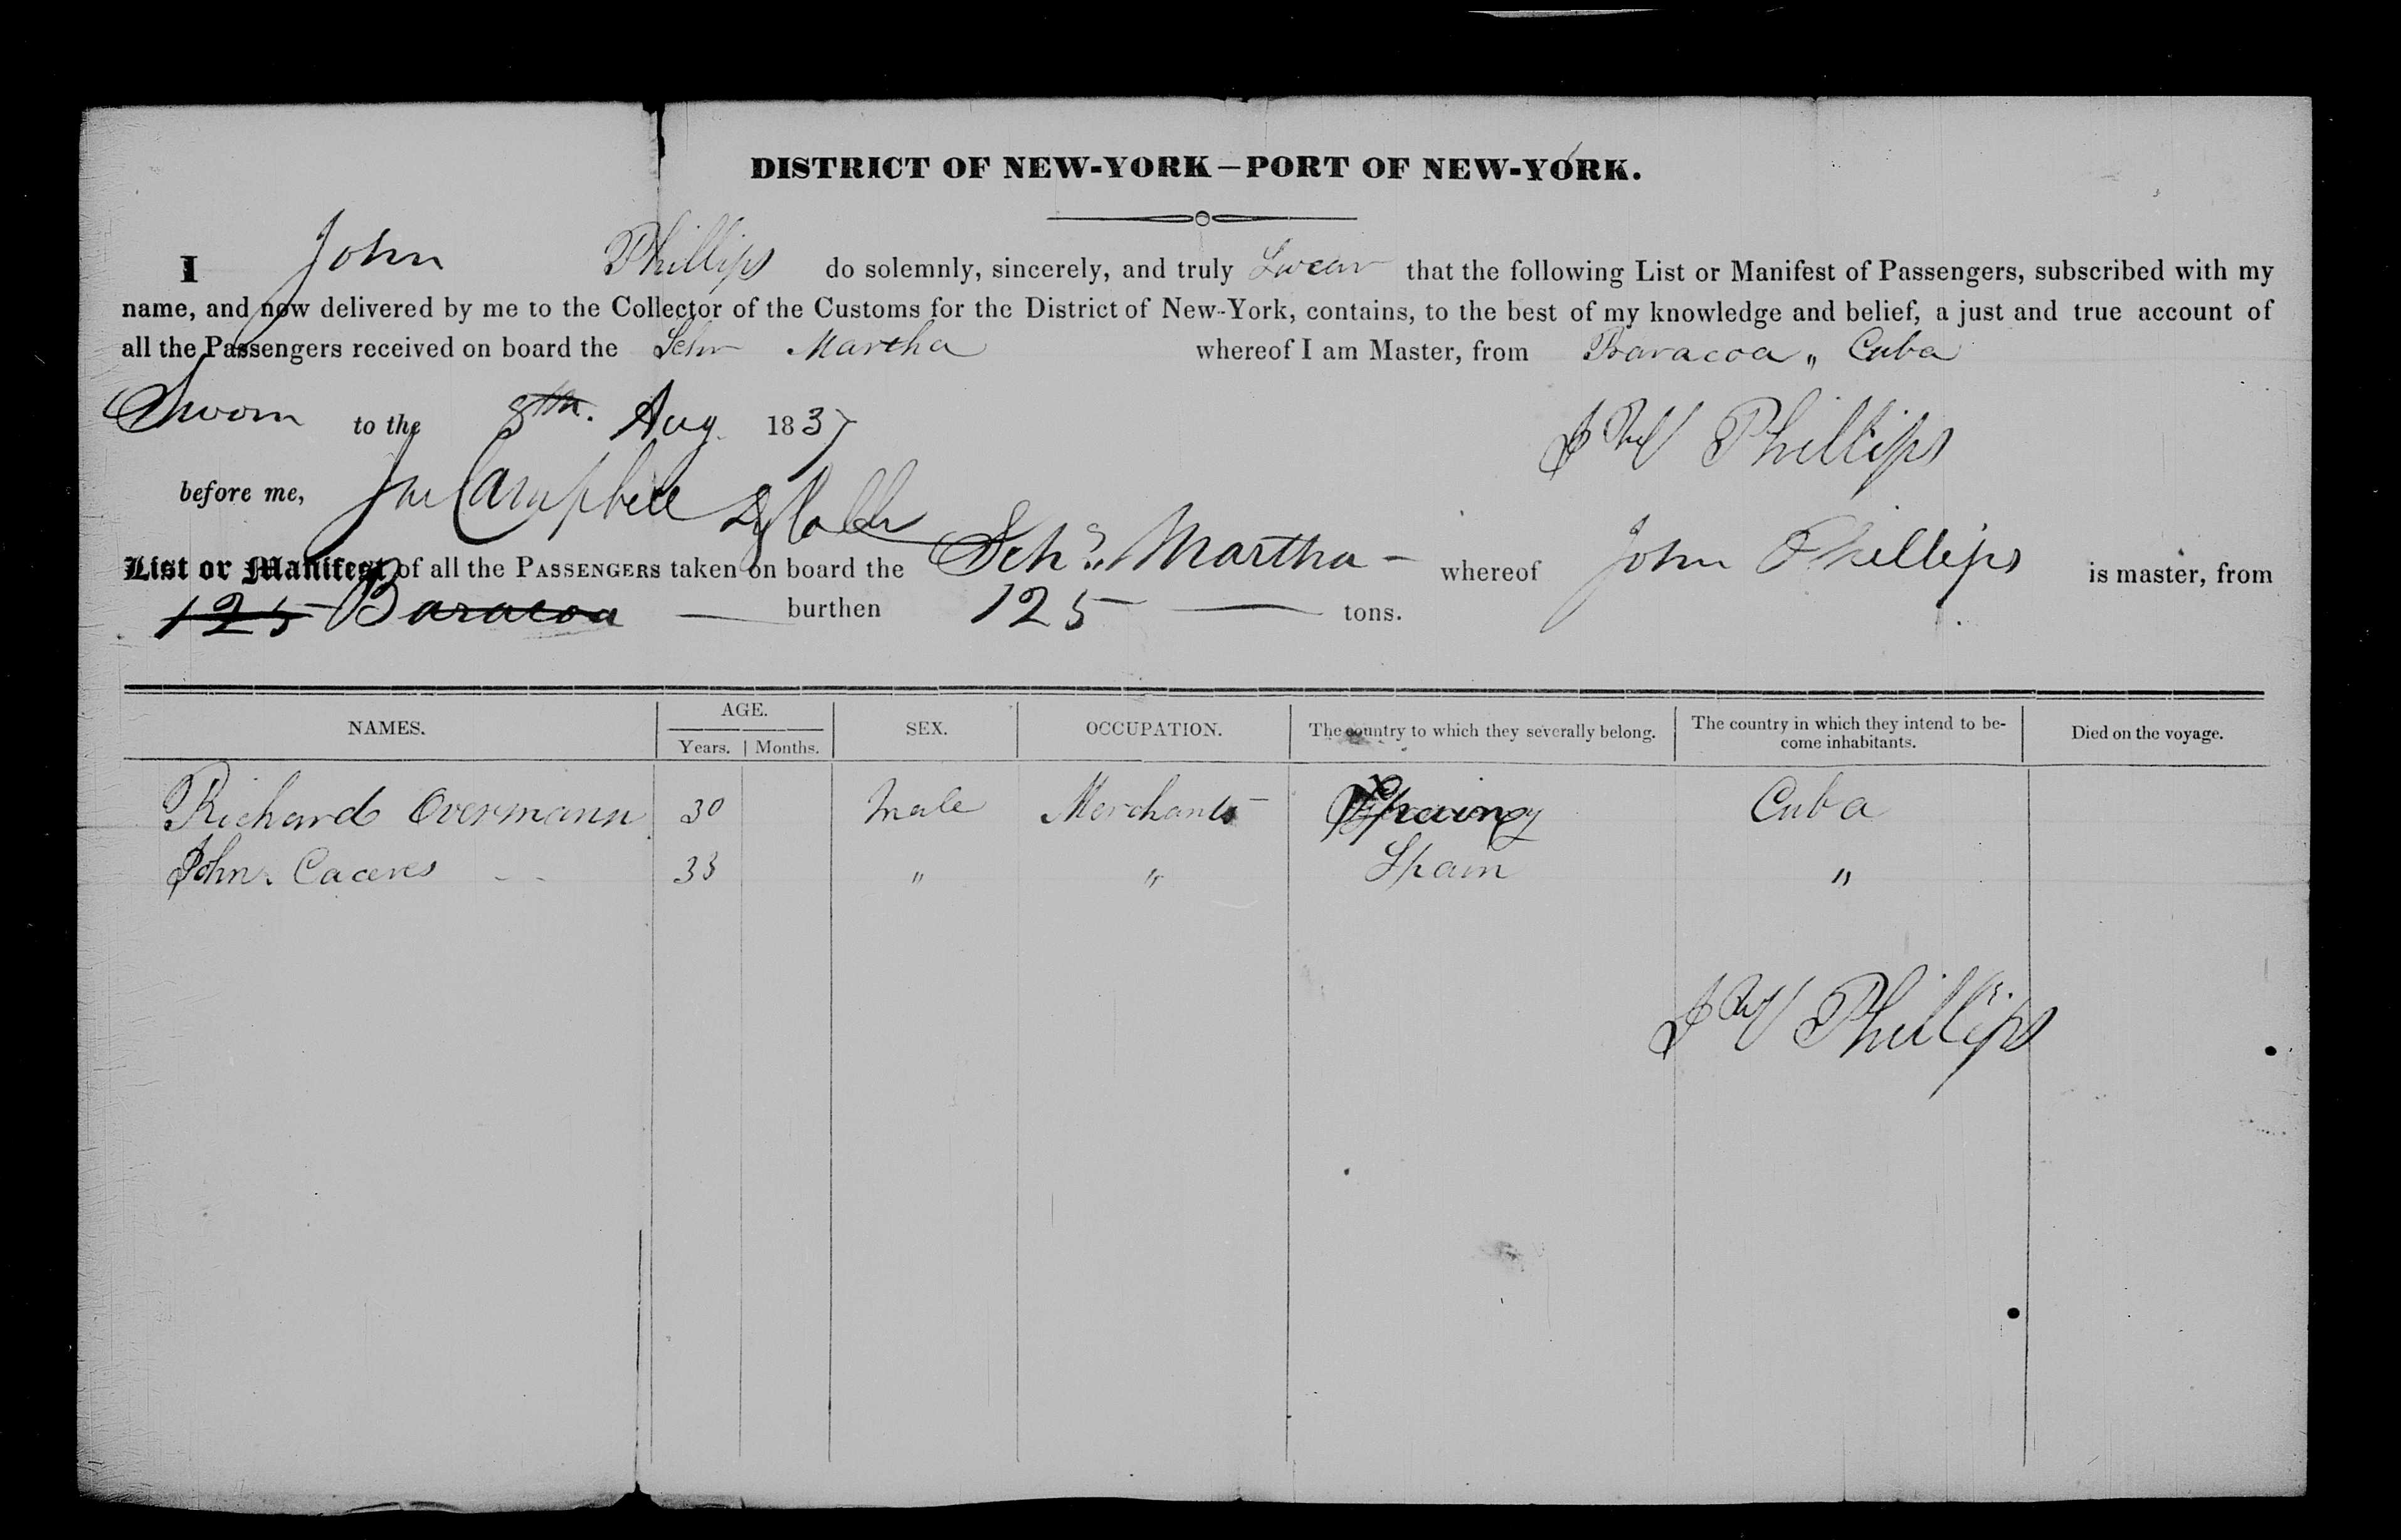 DISTRICT OF NEW-YORK—PORT OF NEW-YORK.
I John Phillips do solemnly, sincerely, and truly Swear that the following List or Manifest of Passengers, subscribed with my
name, and now delivered by me to the Collector of the Customs for the District of New-York, contains, to the best of my knowledge and belief, a just and true account of
all the Passengers received on board the Schr Martha whereof I am Master, from Baracoa „ Cuba
Sworn to the 8th. Aug 1837
Phillips
before me, Campbell Dy Collr
List or Manifest of all the PASSENGERS taken on board the Schr. Martha — whereof John Phillips is master, from
125 Baracoa — burthen 125 — tons.
NAMES. AGE. Years. Months. SEX. OCCUPATION. The country to which they severally belong. The country in which they intend to become inhabitants. Died on the voyage.
Richard Overmann 30 Male Merchants Cuba
John Caceres 33 " " Spain "
Phillips